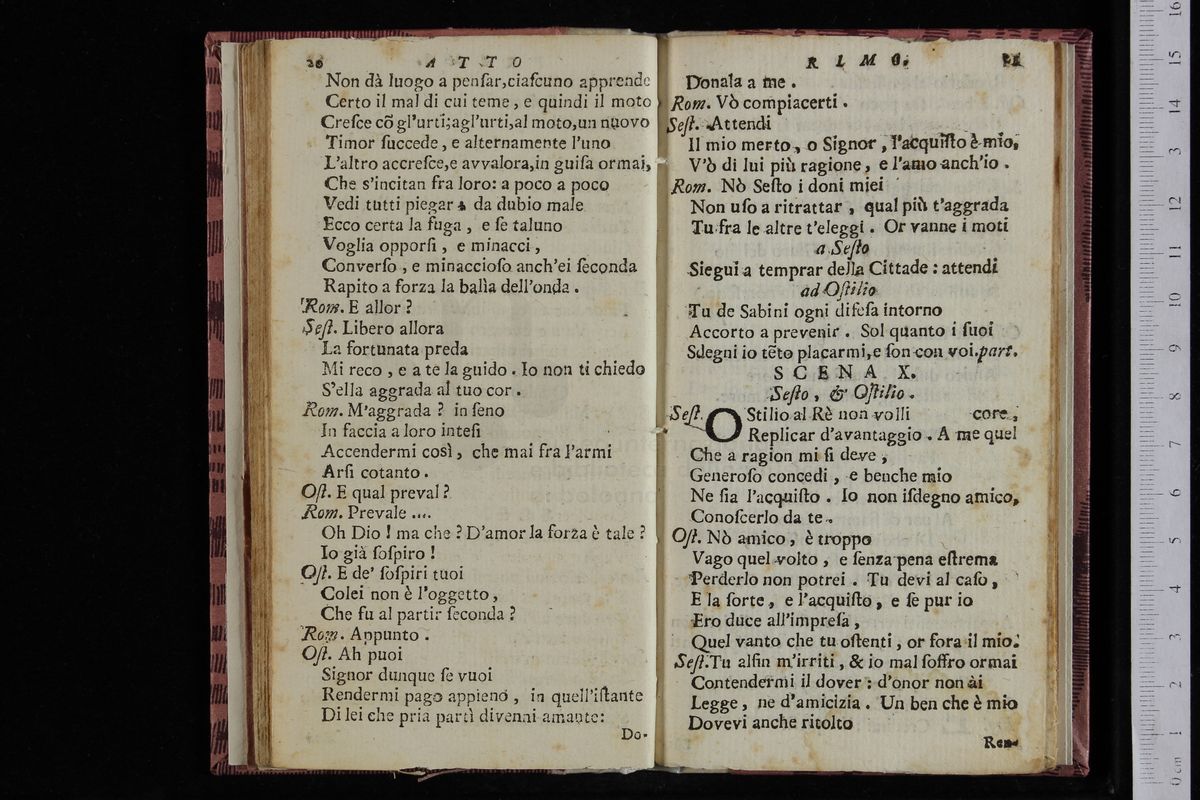 20 ATTO
Non dà luogo a penſar,ciaſcuno apprende
Certo il mal di cui teme , e quindi il moto
Creſce cõ gl'urti;agl'urti,al moto,un nuovo
Timor ſuccede , e alternamente l'uno
L'altro accreſce,e avvalora,in guiſa ormai,
Che s'incitan fra loro: a poco a poco
Vedi tutti piegar a da dubio male
Ecco certa la fuga , e ſe taluno
Voglia opporſi , e minacci ,
Converſo , e minaccioſo anch'ei ſeconda
Rapito a forza la balìa dell'onda .
Rom. E allor ?
Seſt. Libero allora
La fortunata preda
Mi reco , e a te la guido . Io non ti chiedo
S'ella aggrada al tuo cor .
Rom. M'aggrada ? in ſeno
In faccia a loro inteſi
Accendermi così , che mai fra l'armi
Arſi cotanto .
Oſt. E qual preval ?
Rom. Prevale ....
Oh Dio ! ma che ? D'amor la forza è tale ?
Io già ſoſpiro !
Oſt. E de' ſoſpiri tuoi
Colei non è l'oggetto ,
Che fu al partir ſeconda ?
Rom. Appunto .
Oſt. Ah puoi
Signor dunque ſe vuoi
Rendermi pago appieno , in quell'iſtante
Di lei che pria partì divenni amante:
Do-
RIMO. 21
Donala a me .
Rom. Vò compiacerti .
Seſt. Attendi
Il mio merto , o Signor , l'acquiſto è mio,
V'ò di lui più ragione , e l'amo anch'io .
Rom. Nò Seſto i doni miei
Non uſo a ritrattar , qual più t'aggrada
Tu fra le altre t'eleggi . Or vanne i moti
a Seſto
Siegui a temprar della Cittade : attendi
ad Oſtilio
Tu de Sabini ogni difeſa intorno
Accorto a prevenir . Sol quanto i ſuoi
Sdegni io tẽto placarmi,e ſon con voi.part.
SCENA X.
Seſto , & Oſtilio .
Seſt. OStilio al Rè non volli core ,
Replicar d'avantaggio . A me quel
Che a ragion mi ſi deve ,
Generoſo concedi , e benche mio
Ne ſia l'acquiſto . Io non iſdegno amico,
Conoſcerlo da te .
Oſt. Nò amico , è troppo
Vago quel volto , e ſenza pena eſtrema
Perderlo non potrei . Tu devi al caſo ,
E la ſorte , e l'acquiſto , e ſe pur io
Ero duce all'impreſa ,
Quel vanto che tu oſtenti , or fora il mio.
Seſt.Tu alfin m'irriti , & io mal ſoffro ormai
Contendermi il dover : d'onor non ài
Legge , ne d'amicizia . Un ben che è mio
Dovevi anche ritolto
Ren-
0 cm 1 2 3 4 5 6 7 8 9 10 11 12 13 14 15 16